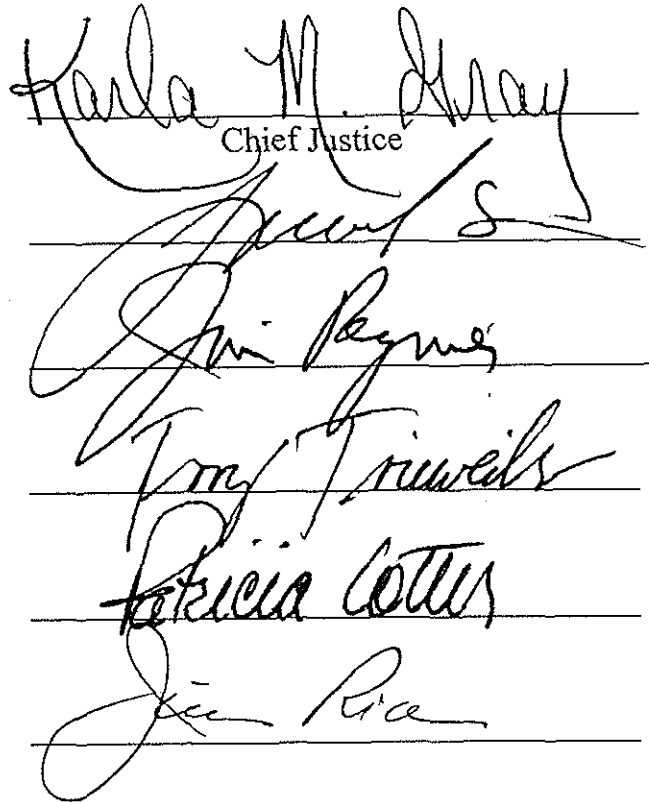 Karla M. Gray
Chief Justice
Jim Regnier
Terry Trieweiler
Patricia Cotter
Jim Rice